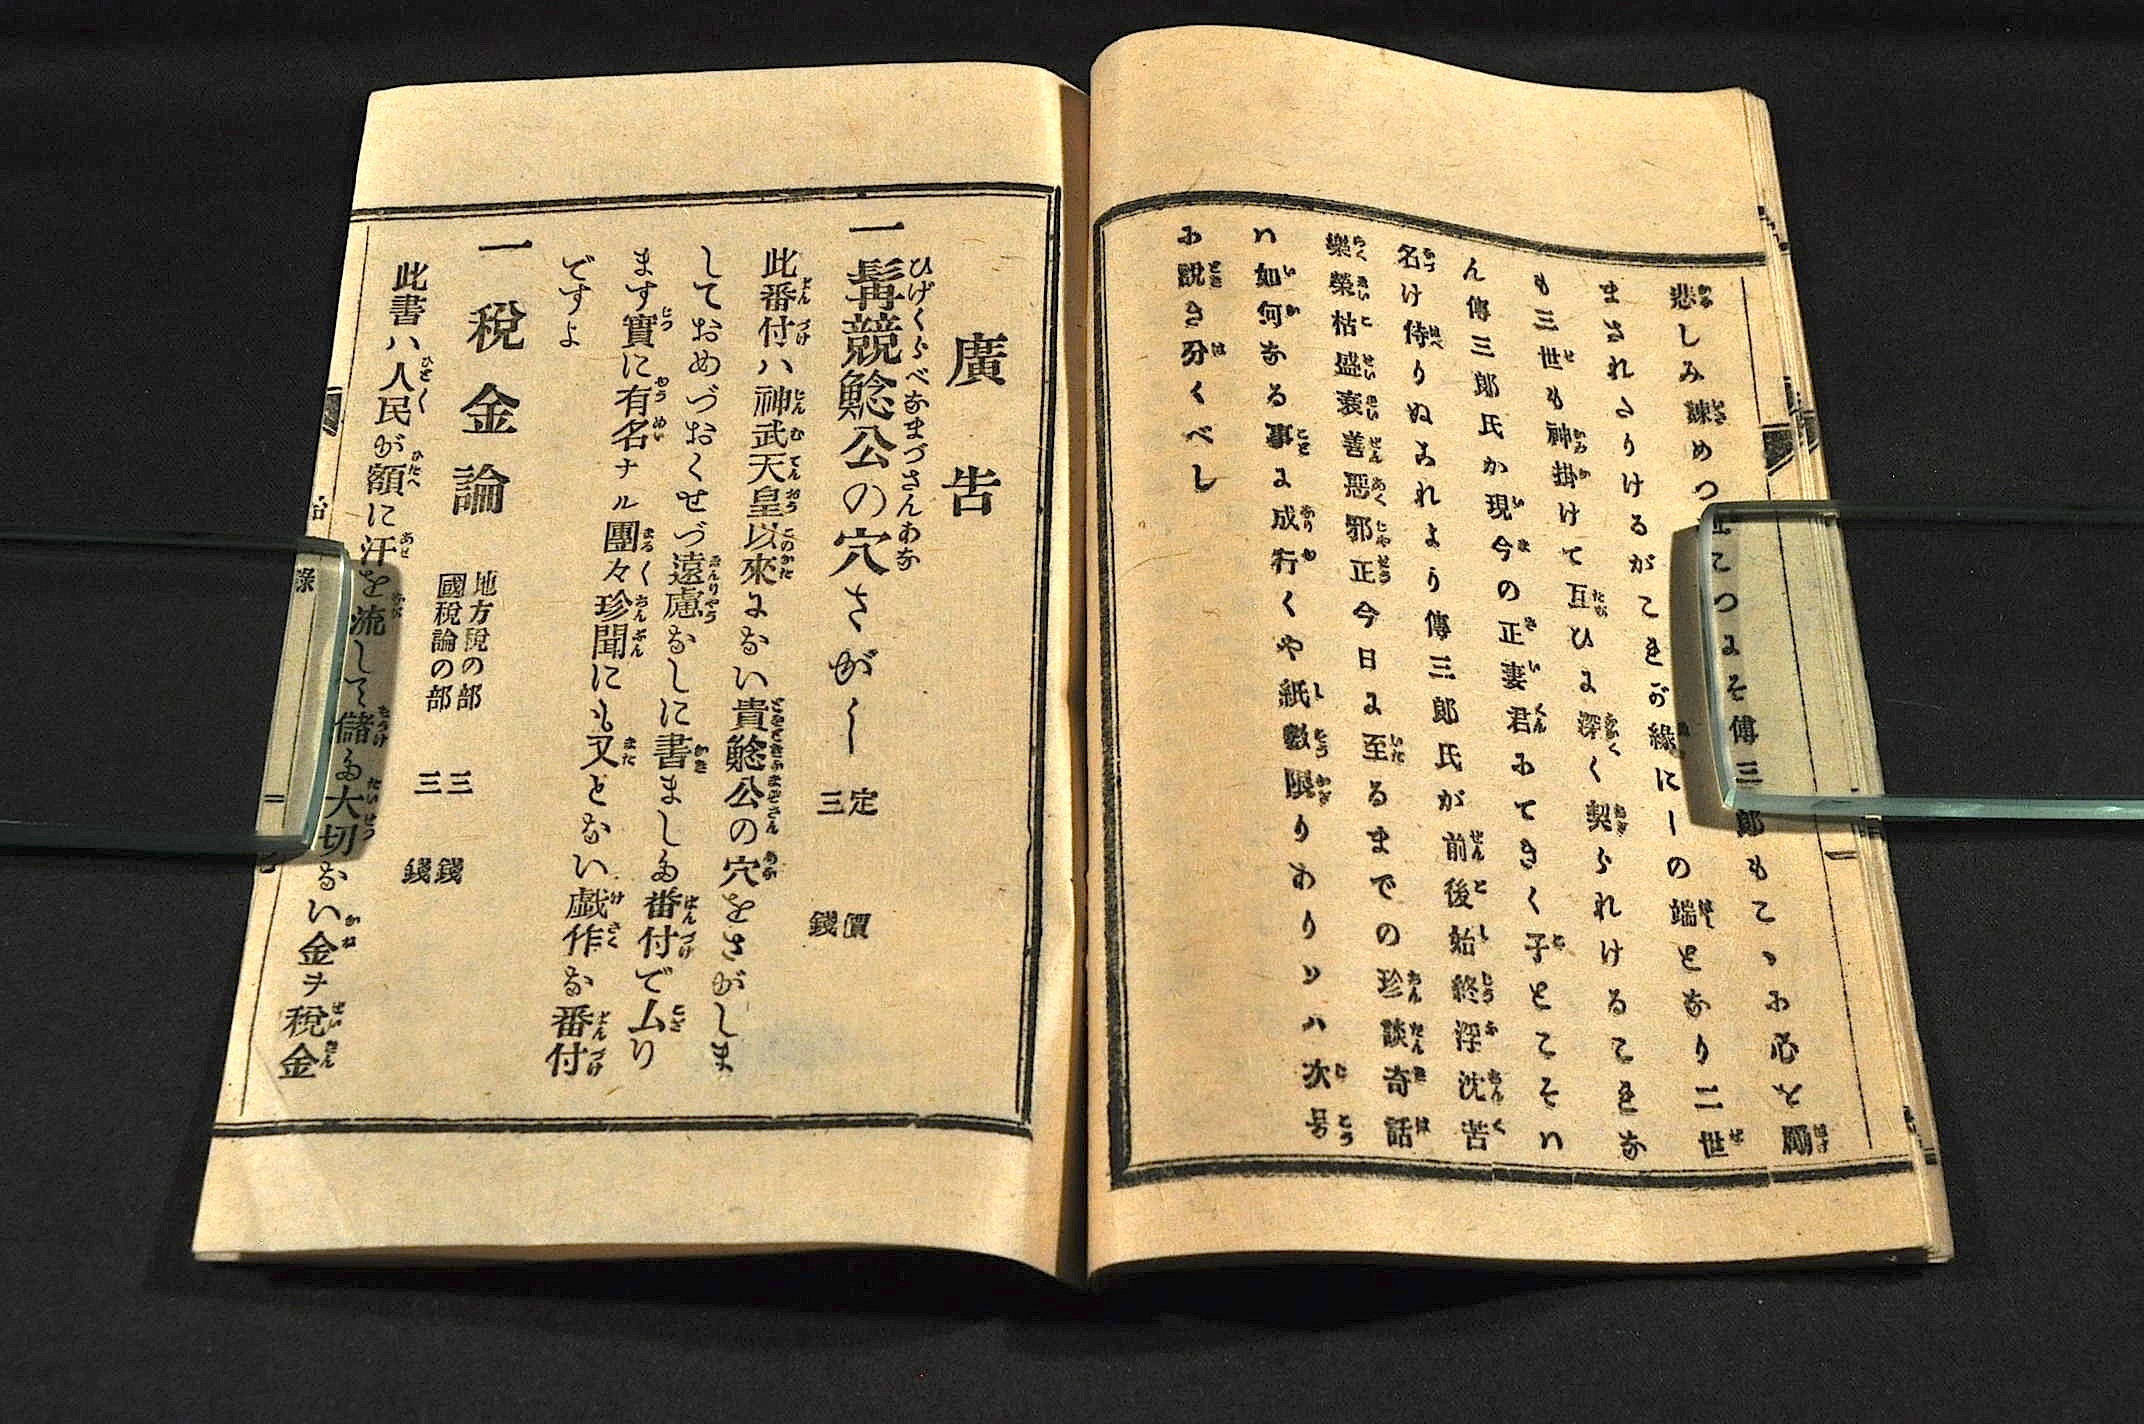 悲しみ諫めつ
つよそ傳三郎もこゝふ心を勵
まされさりけるがこれが緣にーの端となり二世
も三世も神掛けて互ひよ深く契られけることな
ん傳三郎氏か現今の正妻君ふてきく子とこそハ
名け侍りぬされより傳三郎氏が前後始終浮沈苦
樂榮枯盛衰善惡邪正今日よ至るまでの珍談奇話
ハ如何なる事よ成行くや紙數限りありソハ次号
ふ說き分くべし
廣告
一髯競鯰公の穴さがし 定價三錢
此番付ハ神武天皇以來よない貴鯰公の穴をさがしま
しておめづおくせづ遠慮なしに書ましな番付でムり
ます實に有名ナル團々珍聞にも又とない戯作な番付
ですよ
一稅金論 地方稅の部 三錢
國稅論の部 三錢
此書ハ人民が額に汗を流して儲な大切ない金ヲ稅金